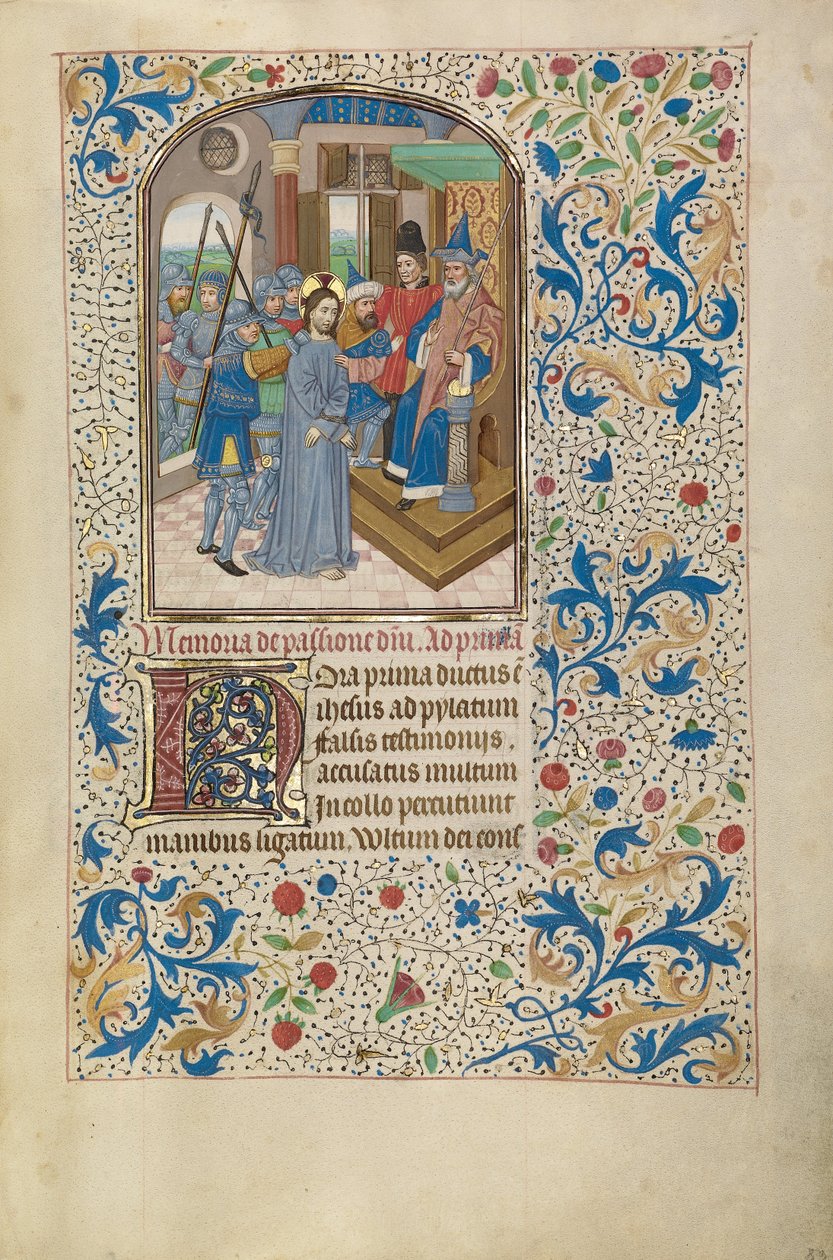 Memoria de passione dñi. Ad prima
Hora prima ductus ẽ
ihesus ad pylatum
falsis testimonijs.
accusatus multum
In collo percutiunt
manibus ligatum. Wltum dei cons